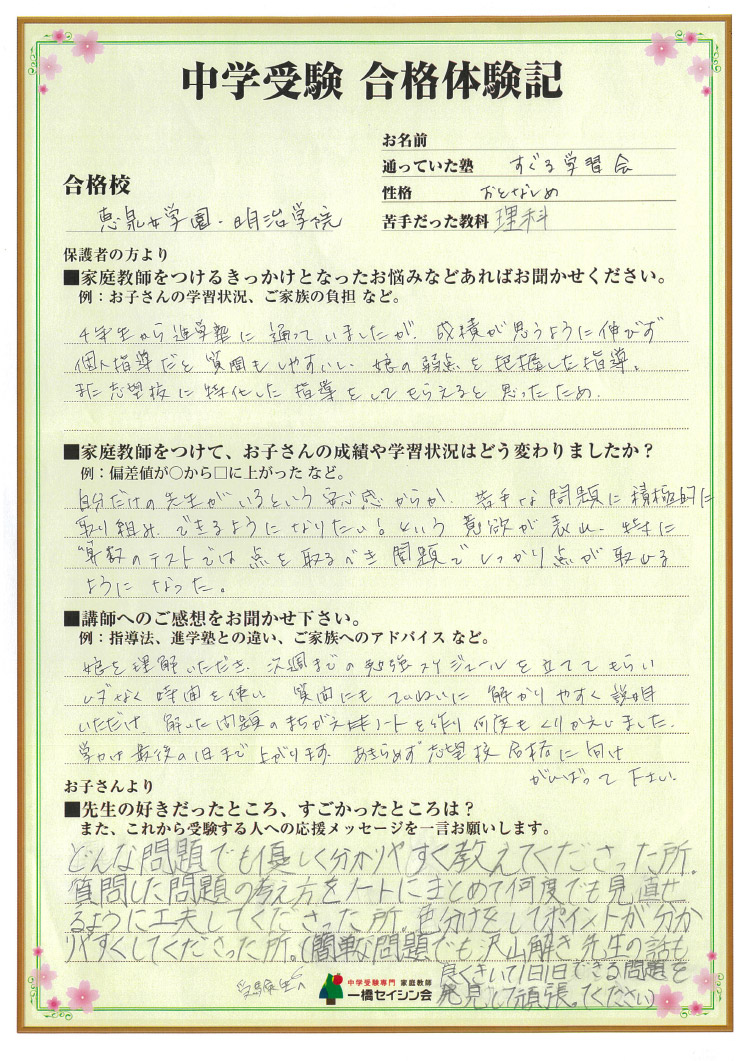 中学受験 合格体験記
お名前
通っていた塾 すぐる学習会
合格校
性格 おとなしめ
恵泉女学園・明治学院
苦手だった教科 理科
保護者の方より
■家庭教師をつけるきっかけとなったお悩みなどあればお聞かせください。
例：お子さんの学習状況、ご家族の負担 など。
4年生から進学塾に通っていましたが、成績が思うように伸びず
個人指導だと質問もしやすいし、娘の弱点を把握した指導。
また志望校に特化した指導をしてもらえると思ったため。
■家庭教師をつけて、お子さんの成績や学習状況はどう変わりましたか？
例：偏差値が○から□に上がった など。
自分だけの先生がいるという安心感からか、苦手な問題に積極的に
取り組み、できるようになりたい！という意欲が表れ、特に
算数のテストでは点を取るべき問題でしっかり点が取れる
ようになった。
■講師へのご感想をお聞かせ下さい。
例：指導法、進学塾との違い、ご家族へのアドバイス など。
娘を理解いただき、次週までの勉強スケジュールを立ててもらい
むだなく時間を使い 質問にもていねいに解かりやすく説明
いただけ、解いた問題のまちがえ直しノートを作り何度もくりかえしました。
学力は最後の1日まで上がります。あきらめず志望校合格に向け
がんばって下さい。
お子さんより
■先生の好きだったところ、すごかったところは？
また、これから受験する人への応援メッセージを一言お願いします。
どんな問題でも優しく分かりやすく教えてくださった所。
質問した問題の考え方をノートにまとめて何度でも見直せ
るように工夫してくださった所。色分けをしてポイントが分か
りやすくしてくださった所。(簡単な問題でも沢山解き先生の話も
良くきいて1日1日できる問題を
発見して頑張ってください)
受験生へ
中学受験専門 家庭教師
一橋セイシン会